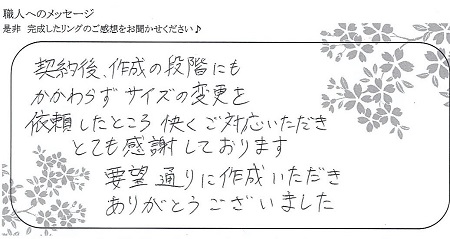 職人へのメッセージ
是非 完成したリングのご感想をお聞かせください♪
契約後、作成の段階にも
かかわらずサイズの変更を
依頼したところ 快くご対応いただき
とても感謝しております
要望通りに作成いただき
ありがとうございました